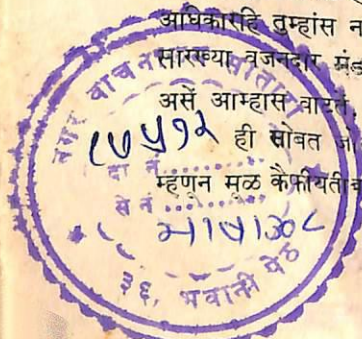 अधिकारहि तुम्हांस न
सारख्या वजनदार मंड
असें आम्हास वाटतें.
ही सोबत जो
म्हणून मूळ कैफीयतीच
नगर वाचना
सातारा
दा नं.
से नं.
३६, भवानी पेठ